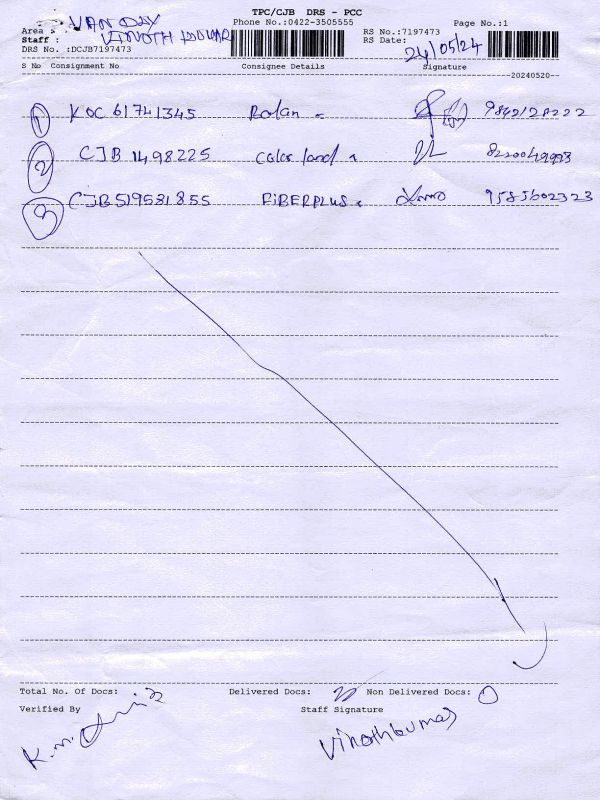 TPC/CJB DRS - PCC
Phone No.:0422-3505555 Page No.:1
Area : VAN DAY
Staff : VINOTH KUMAR
RS No.:7197473
RS Date: 24/05/24
DRS No. :DCJB7197473
S No Consignment No Consignee Details Signature
20240520
1 KOC 61741345 Rolan
2 CJB 1498225 Color land
3 CJB519531855 FIBERPLUS 9585602323
Total No. Of Docs: Delivered Docs: Non Delivered Docs: 0
Verified By Staff Signature
Vinothkumar